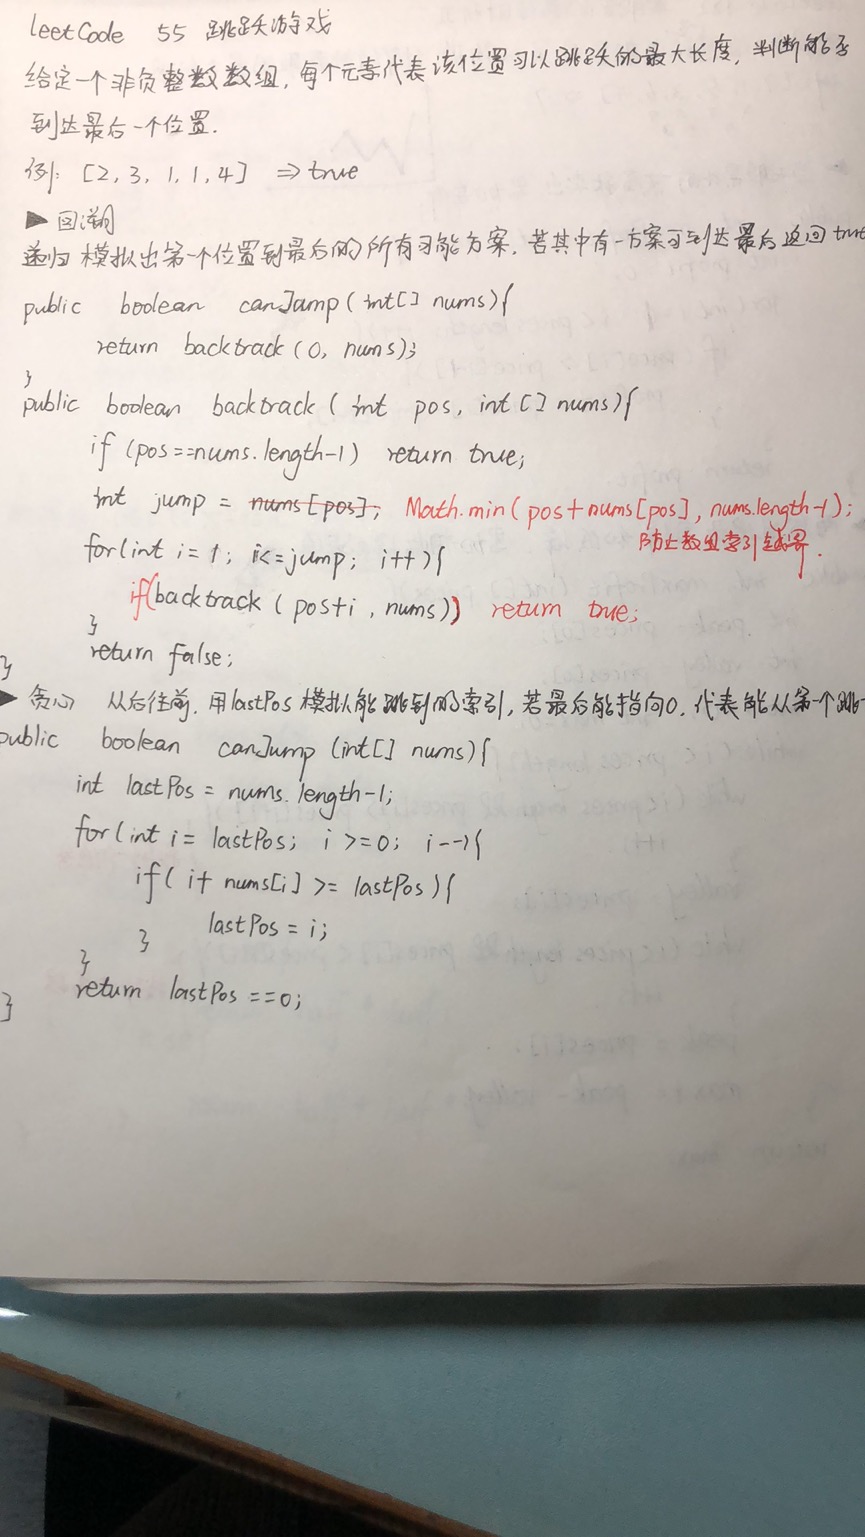 leetCode 55 跳跃游戏
给定一个非负整数数组，每个元素代表该位置可以跳跃的最大长度，判断能否
到达最后一个位置.
例: [2, 3, 1, 1, 4] ⇒ true
▶ 回溯
递归 模拟出第一个位置到最后的所有可能方案，若其中有一方案可到达最后返回true
public boolean canJump(int[] nums){
return backtrack(0, nums);
}
public boolean backtrack(int pos, int[] nums){
if (pos==nums.length-1) return true;
int jump = nums[pos]; Math.min(pos+nums[pos], nums.length-1);
防止数组索引越界.
for(int i = 1; i<=jump; i++){
if(backtrack(pos+i, nums)) return true;
}
return false;
}
▶ 贪心 从后往前. 用lastPos模拟能跳到的索引，若最后能指向0，代表能从第一个跳
public boolean canJump(int[] nums){
int lastPos = nums.length-1;
for(int i = lastPos; i >=0; i--){
if(i+nums[i] >= lastPos){
lastPos = i;
}
}
return lastPos ==0;
}